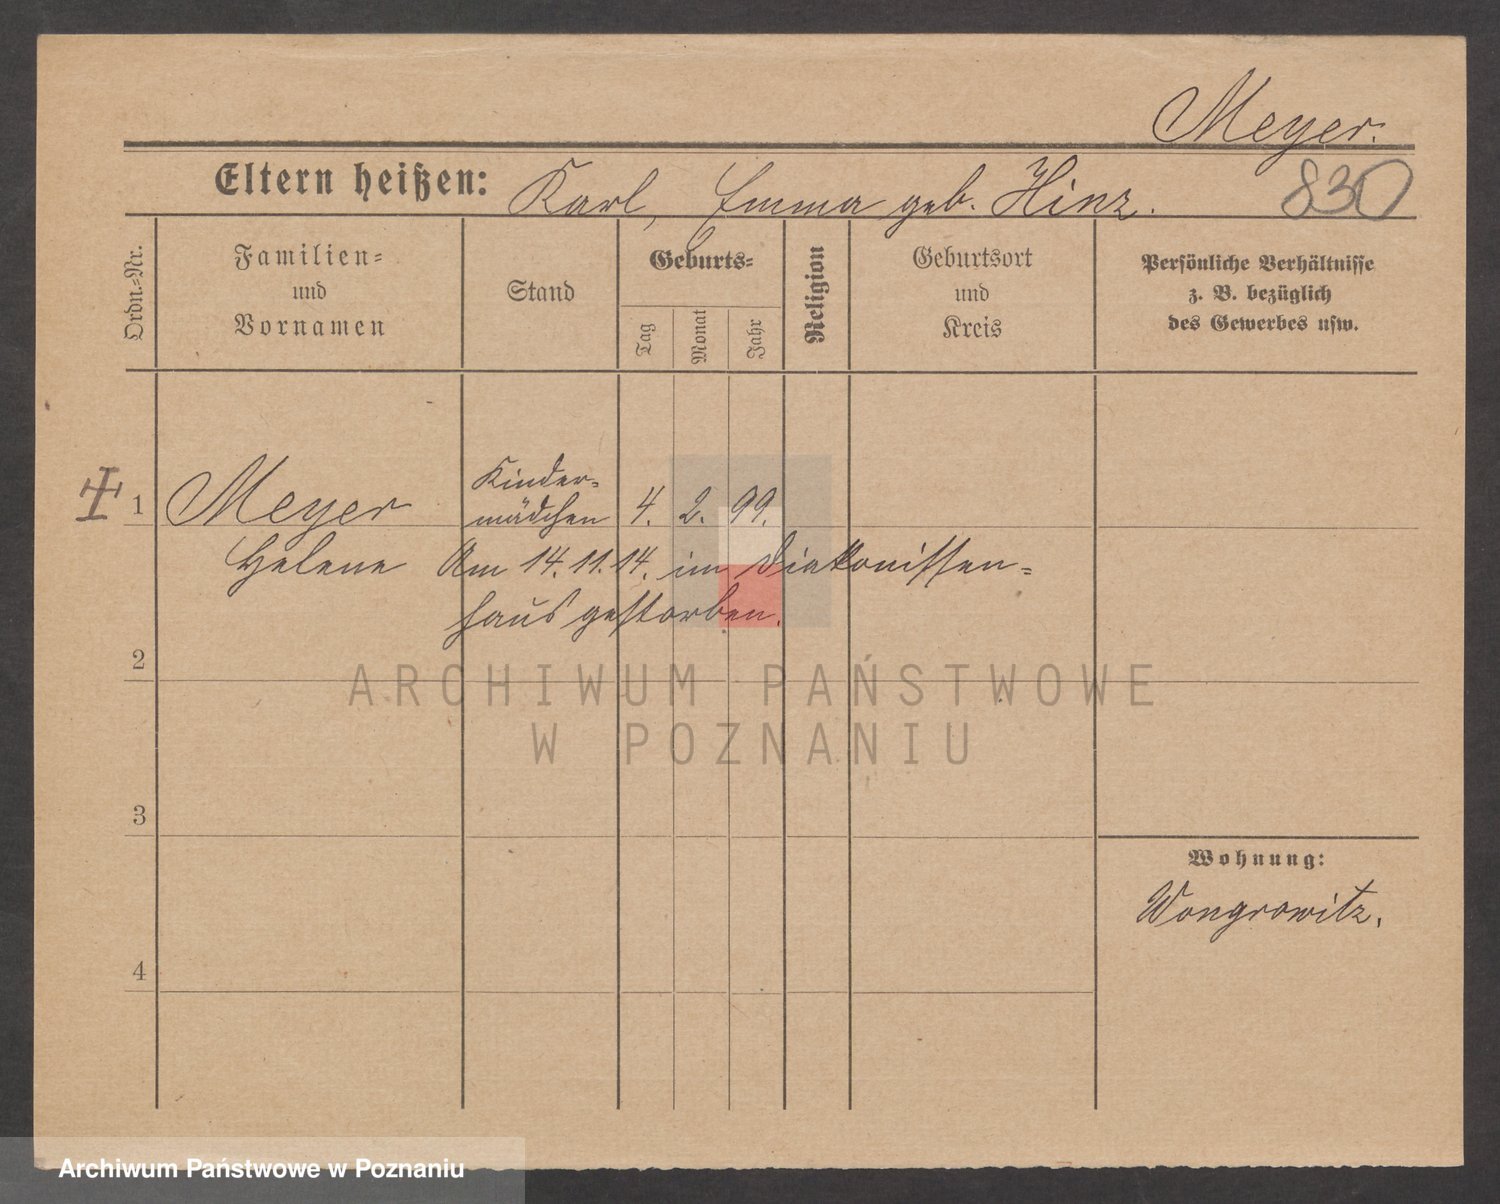 Meyer.
Eltern heißen: Karl, Emma geb. Hinz. 830
Ordn.-Nr.
Familien-
und
Vornamen
Stand
Geburts-
Tag
Monat
Jahr
Religion
Geburtsort
und
Kreis
Persönliche Verhältnisse
z. B. bezüglich
des Gewerbes usw.
1 Meyer Kinder-
mädchen 4. 2. 99.
Helene Am 14.11.14. im Diakonissen-
haus gestorben.
2
ARCHIWUM PAŃSTWOWE
W POZNANIU
3
Wohnung:
Wongrowitz.
4
Archiwum Państwowe w Poznaniu